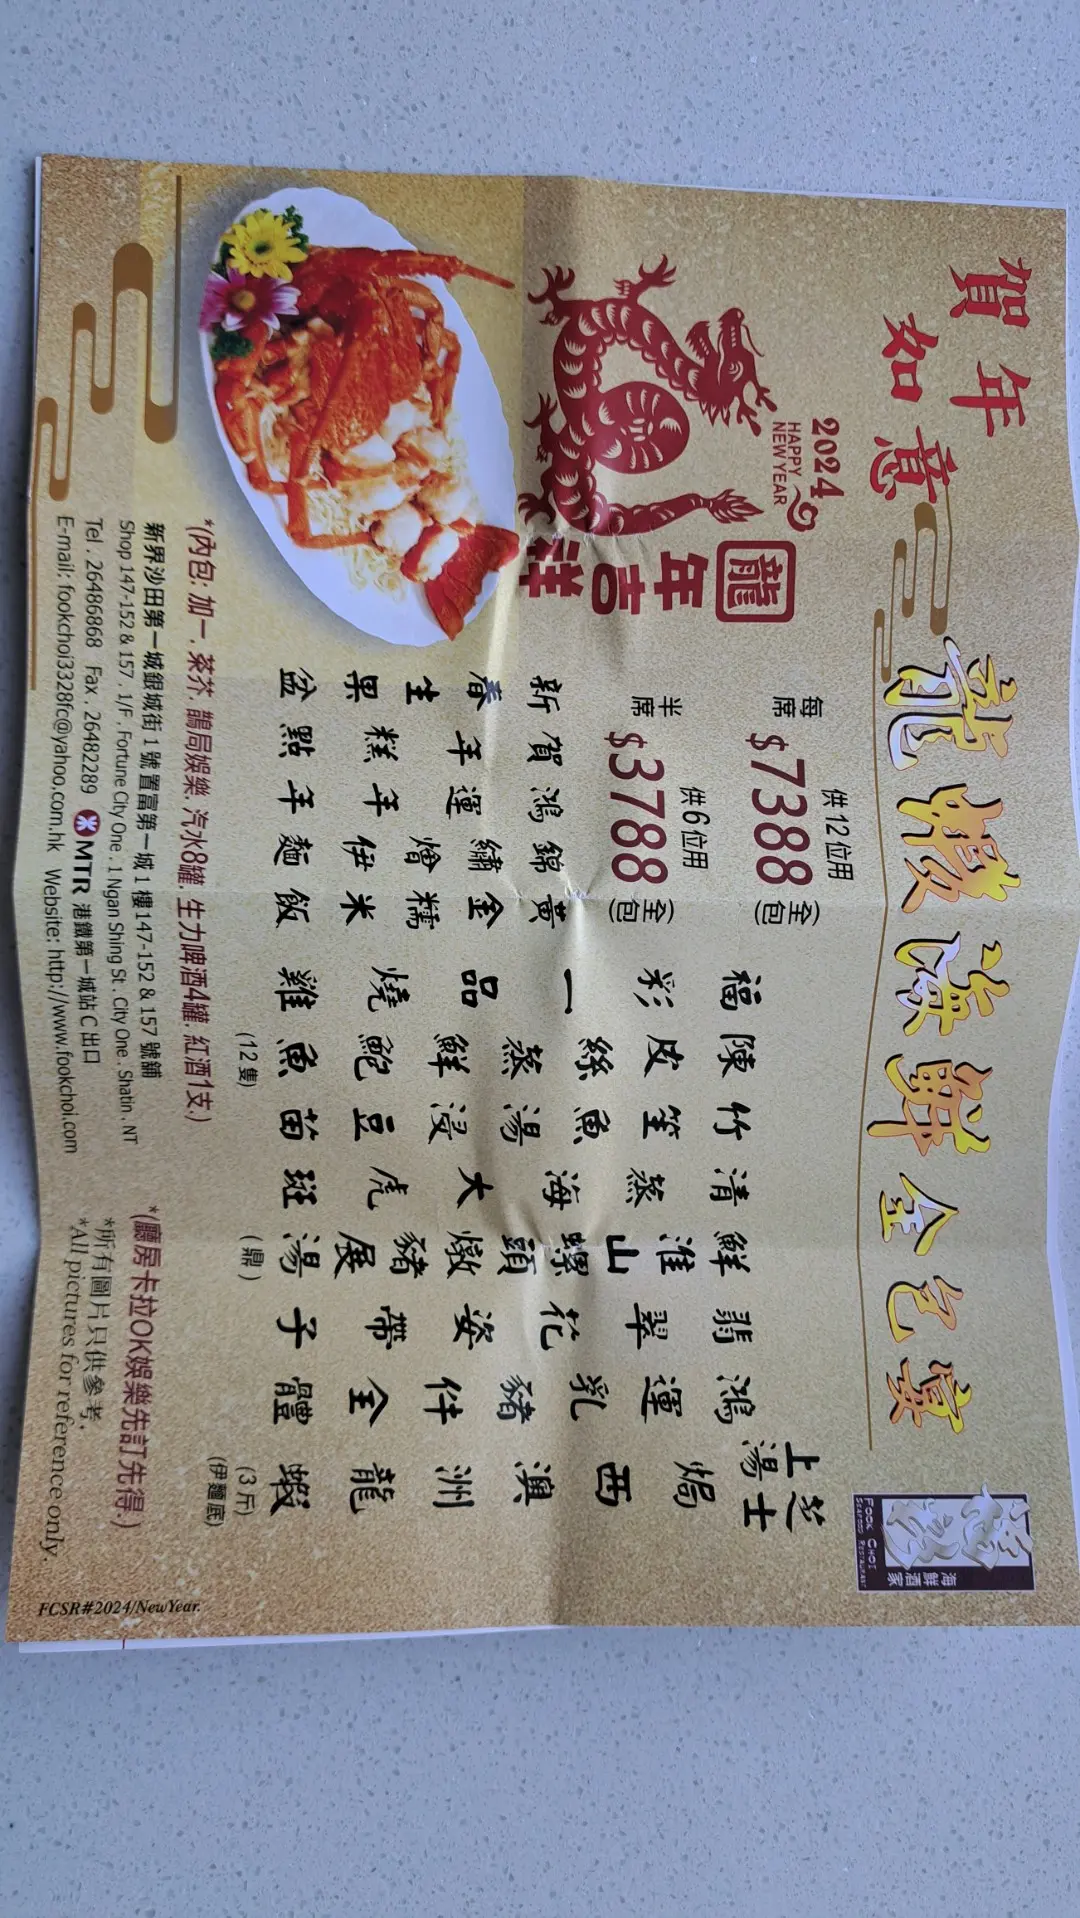 賀年
如意
龍蝦海鮮全包宴
海鮮酒家
FOOK CHOI
SEAFOOD RESTAURANT
2024
HAPPY
NEW YEAR
龍年吉祥
每席 $7388 供12位用 (全包)
半席 $3788 供6位用 (全包)
上湯芝士焗西澳洲龍蝦 (3斤) (伊麵底)
鴻運乳豬件全體
翡翠花姿帶子
鮮淮山螺頭燉豬展湯 (鼎)
清蒸海大虎斑
竹笙魚湯浸豆苗
陳皮絲蒸鮮鮑魚 (12隻)
福彩一品燒雞
黃金糯米飯
錦繡燴伊麵
鴻運年年
賀年糕點
新春生果盆
*(內包: 加一. 茶芥. 鵲局娛樂. 汽水8罐. 生力啤酒4罐. 紅酒1支.)
*(廳房卡拉OK娛樂先訂先得.)
新界沙田第一城銀城街1號置富第一城1樓147-152 & 157號舖
Shop 147-152 & 157 . 1/F . Fortune City One . 1 Ngan Shing St . City One . Shatin . NT
*所有圖片只供參考.
Tel . 26486868 Fax . 26482289 MTR 港鐵第一城站C出口
*All pictures for reference only.
E-mail: fookchoi3328fc@yahoo.com.hk Website: http://www.fookchoi.com
FCSR#2024/NewYear.